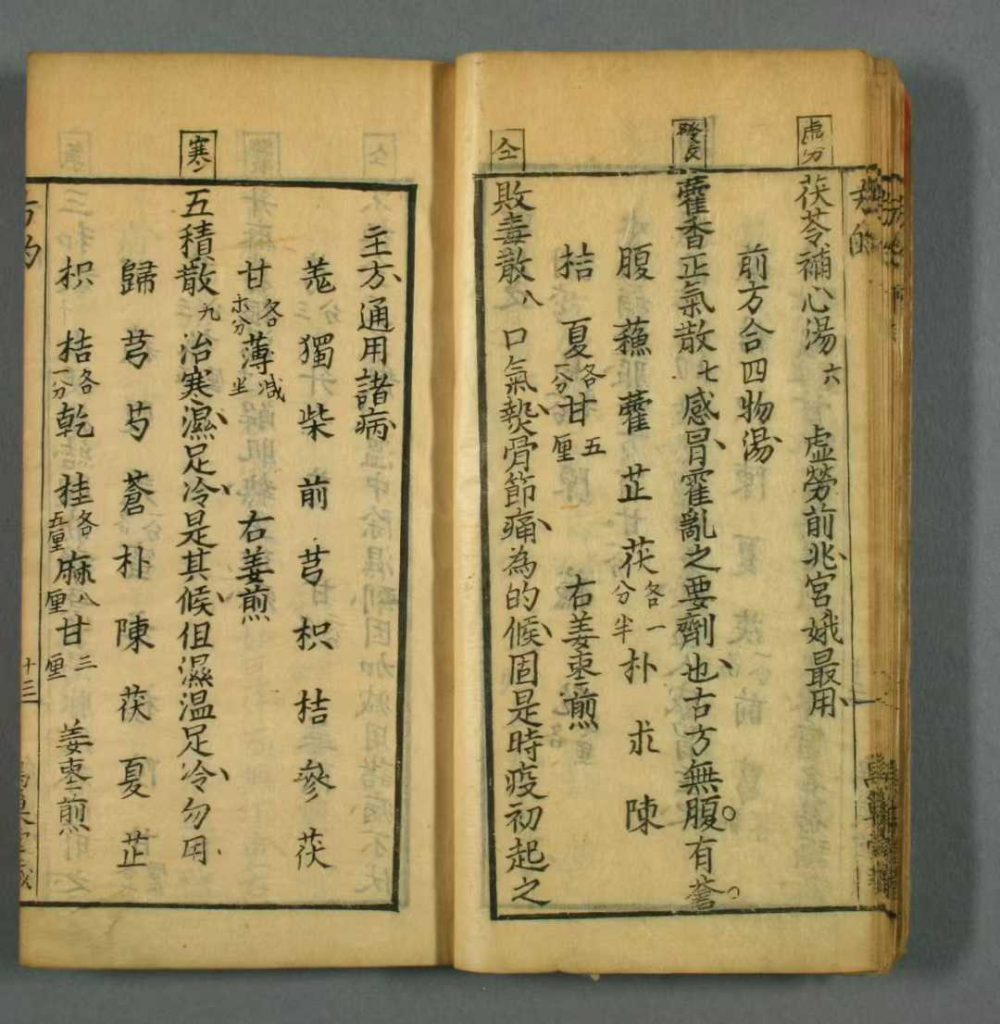 方的
虚分
茯苓補心湯六 虚勞前兆宮娥最用
前方合四物湯
發表
藿香正氣散七 感冒霍亂之要劑也古方無腹有蒼
腹 蘓 藿 芷 茯各一分半 朴 求 陳
桔 夏各一分 甘五厘 右姜枣煎
仝
敗毒散八 口氣𤍠骨節痛為的候固是時疫初起之
主方通用諸病
羗 獨 柴 前 芎 枳 桔 參 茯
甘各六分 薄减半 右姜煎
寒
五積散九 治寒濕足冷是其候但濕温足冷勿用
歸 芎 芍 蒼 朴 陳 茯 夏 芷
枳 桔各一分 乾 桂各五厘 麻八厘 甘三厘 姜枣煎
方的
十三